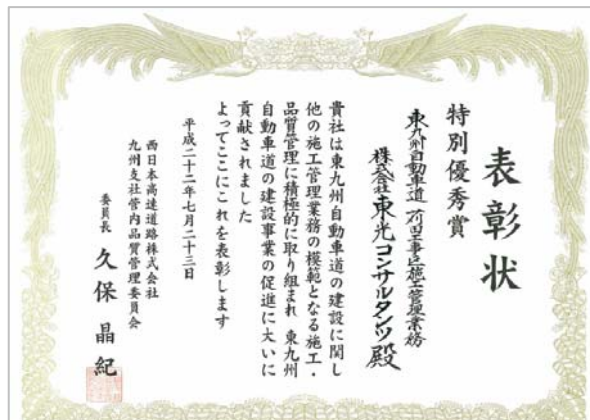 表彰状
特別優秀賞
東九州自動車道 苅田工事区施工管理業務
株式会社東光コンサルタンツ殿
貴社は東九州自動車道の建設に関し
他の施工管理業務の模範となる施工・
品質管理に積極的に取り組まれ 東九州
自動車道の建設事業の促進に大いに
貢献されました
よってここにこれを表彰します
平成二十二年七月二十三日
西日本高速道路株式会社
九州支社管内品質管理委員会
委員長 久保晶紀